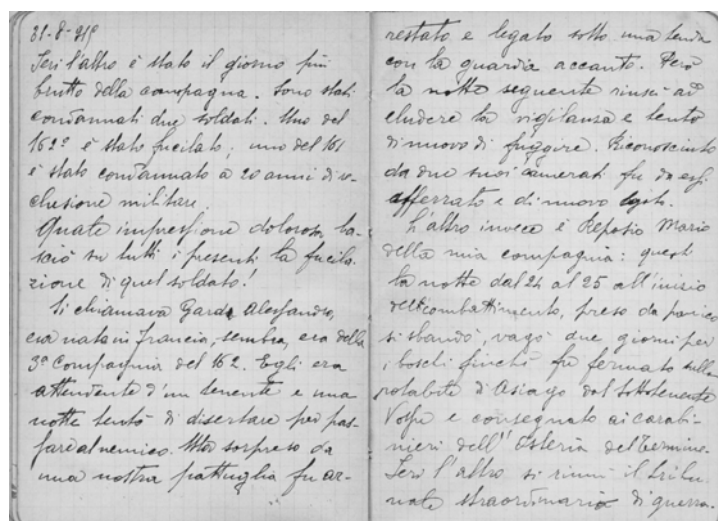 31-8-915
Ieri l'altro è stato il giorno più
brutto della campagna. Sono stati
condannati due soldati. Uno del
162º è stato fucilato; uno del 161
è stato condannato a 20 anni di re-
clusione militare.
Quale impressione dolorosa la-
sciò su tutti i presenti la fucila-
zione di quel soldato!
Si chiamava Garda Alessandro,
era nato in Francia, sembra, era della
3ª Compagnia del 162. Egli era
attendente d'un tenente e una
notte tentò di disertare per pas-
sare al nemico. Ma sorpreso da
una nostra pattuglia fu ar-
restato e legato sotto una tenda
con la guardia accanto. Però
la notte seguente riuscì ad
eludere la vigilanza e tentò
di nuovo di fuggire. Riconosciuto
da due suoi camerati fu da essi
afferrato e di nuovo
L'altro invece è Repossi Mario
della mia compagnia: questi
la notte dal 24 al 25 all'inizio
del combattimento, preso da panico
si sbandò, vagò due giorni per
i boschi finchè fu fermato sulla
rotabile di Asiago dal Sottotenente
Volpe e consegnato ai carabi-
nieri dell'Osteria del Termine.
Ieri l'altro si riunì il tribu-
nale straordinario di guerra.